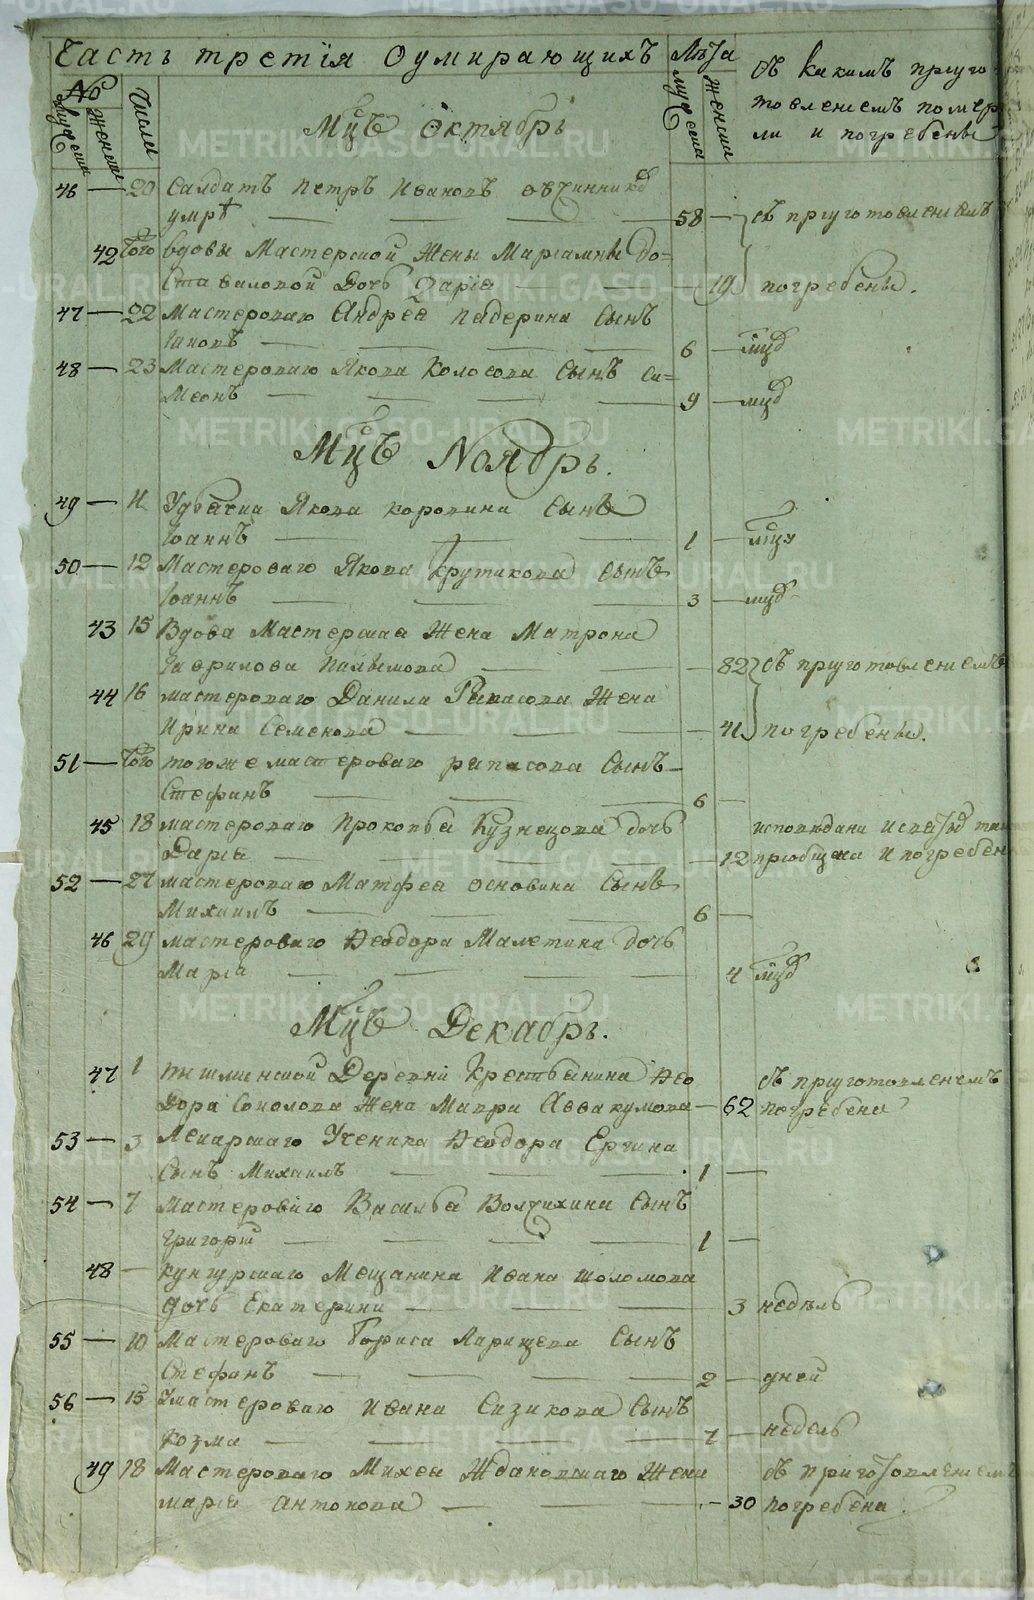 Часть третїя Оумирающихъ
Лѣта
Съ какимъ приуго
товленіемъ помер
ли и погребены
№
Числа
мужеска
женска
мужеска
женска
Мцъ Октябрь
46 — 20 Салдатъ Петръ Ивановъ Овчинниковъ
умре 58 — съ приуготовленіемъ
42 Того вдовы Мастерской Жены Маріамны До=
Дочь Дарїа 19 погребены.
47 — 22 Мастероваго Андрея Падерина Сынъ
6 — мцъ
48 — 23 Мастероваго Якова Колосова Сынъ Си=
меонъ 9 — мцъ
Мцъ Ноябрь.
49 — 11 Якова Коровина Сынъ
Іоаннъ 1 — мцъ
50 — 12 Мастероваго Якова Крутикова Сынъ
Іоаннъ 3 — мцъ
43 15 Вдова Мастерская Жена Матрона
Гаврилова 82 съ приуготовленіемъ
44 16 мастероваго Данила Рыпасова Жена
Ирина Семенова 41 погребены.
51 — Того тогоже мастероваго рыпасова Сынъ
Стефанъ 6 —
45 18 мастероваго Прокопья Кузнецова дочь исповѣдана и святыхъ таи
Дарїа 12 приобщена и погребен
52 — 27 мастероваго Матфея Основина Сынъ
Михаилъ 6 —
46 29 мастероваго Ѳеодора Малетина дочь
Марїа 4 мцъ
Мцъ Декабрь.
47 1 Деревни Крестьянина Ѳео съ приуготовленіемъ
дора Соколова Жена Мавра Аввакумова — 62 погребена
53 — 3 Лекарскаго Ученика Ѳеодора Ергина
Сынъ Михаилъ 1 —
54 — 7 Мастероваго Василья Волчихина Сынъ
Григорїй 1 —
48 — кунгурскаго Мещанина Ивана Шоломова
дочь Екатерина 3 недѣль
55 — 10 Мастероваго Бориса Ларищева Сынъ
Стефанъ 2 — дней
56 — 15 Мастероваго Ивана Сизикова Сынъ
Козма 7 — недель
49 18 Мастероваго Михея Ждановскаго Жена съ приготовленіемъ
марїа Антонова — 30 погребена.
METRIKI.GASO-URAL.RU